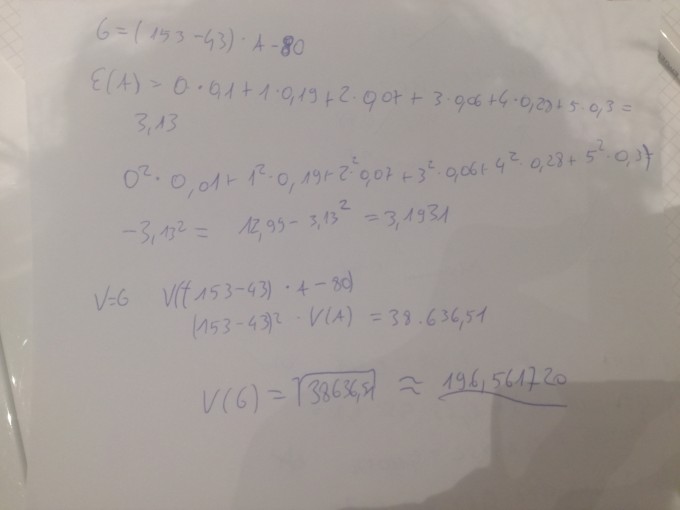 G = (153 - 43) · A - 80
E(A) = 0 · 0,1 + 1 · 0,19 + 2 · 0,07 + 3 · 0,06 + 4 · 0,28 + 5 · 0,3 =
3,13
0² · 0,01 + 1² · 0,19 + 2² · 0,07 + 3² · 0,06 + 4² · 0,28 + 5² · 0,3
- 3,13² = 12,99 - 3,13² = 3,1931
V=G V((153-43) · A - 80)
(153-43)² · V(A) = 38.636,51
V(G) = √38636,51 ≈ 196,561720